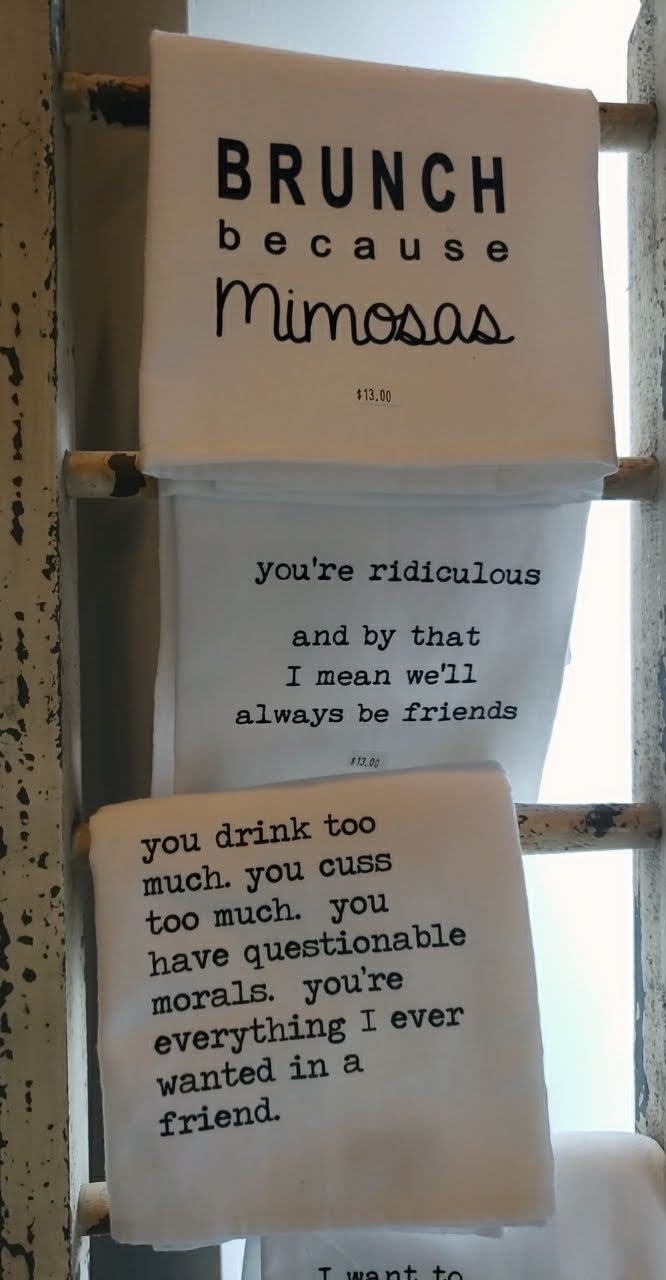 BRUNCH
because
Mimosas
$13.00
you're ridiculous
and by that
I mean we'll
always be friends
$13.00
you drink too
much. you cuss
too much. you
have questionable
morals. you're
everything I ever
wanted in a
friend.
I want to